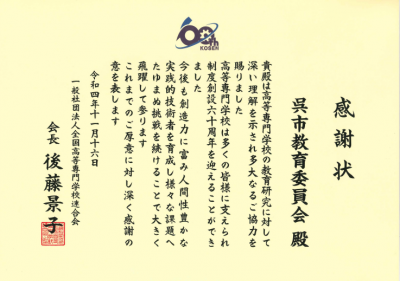 60th
KOSEN
感謝状
呉市教育委員会 殿
貴殿は高等専門学校の教育研究に対して
深い理解を示され多大なるご協力を
賜りました
高等専門学校は多くの皆様に支えられ
制度創設六十周年を迎えることができ
ました
今後も創造力に富み人間性豊かな
実践的技術者を育成し様々な課題へ
たゆまぬ挑戦を続けることで大きく
飛躍して参ります
これまでのご厚意に対し深く感謝の
意を表します
令和四年十一月十六日
一般社団法人全国高等専門学校連合会
会長 後藤景子